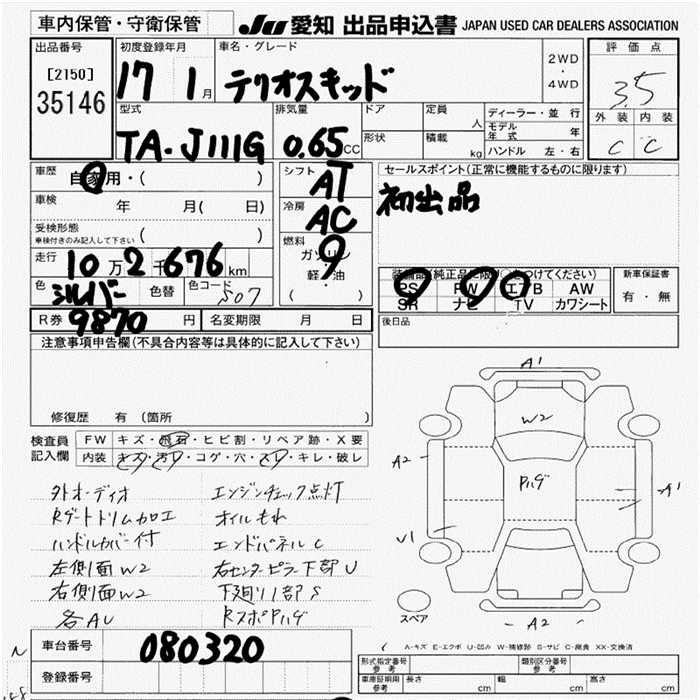 車内保管・守衛保管
JU 愛知 出品申込書 JAPAN USED CAR DEALERS ASSOCIATION
出品番号
[2150]
35146
初度登録年月
17 1月
車名・グレード
テリオスキッド
2WD
・
4WD
評価点
3.5
外装 内装
C C
型式
TA-J111G
排気量
0.65CC
ドア
形状
定員 人
積載 kg
ディーラー・並行
モデル年式 年
ハンドル 左・右
車歴
自家用・( )
車検 年 月( 日)
受検形態
車検付きのみ記入して下さい ( )
走行
10万2千676km
色
シルバー
色替
色コード
S07
シフト
AT
冷房
AC
燃料
ガソリン
軽・油
( )
セールスポイント(正常に機能するものに限ります)
初出品
装備品(純正品に限り○をつけてください)
PS PW エアB AW
SR ナビ TV カワシート
新車保証書
有・無
R券 9870 円
名変期限 月 日
後日品
注意事項申告欄(不具合内容等は具体的に記入して下さい)
修復歴 有 (箇所 )
検査員記入欄
FW キズ・飛石・ヒビ割・リペア跡・X要
内装 キズ・汚レ・コゲ・穴・スレ・キレ・破レ
外オーディオ
Rゲートトリム加工
ハンドルカバー付
左側面W2
右側面W2
各AU
エンジンチェック点灯
オイルもれ
エンドパネルC
右センターピラー下部U
下廻り部S
RスポPハゲ
A1
W2
A2
Pハゲ
A1
U1
スペア
A2
A-キズ E-エクボ U-凹み W-補修跡 S-サビ C-腐食 XX-交換済
車台番号
080320
登録番号
型式指定番号
参考
類別区分番号
参考
車庫証明用
参考
長さ cm
幅 cm
高さ cm